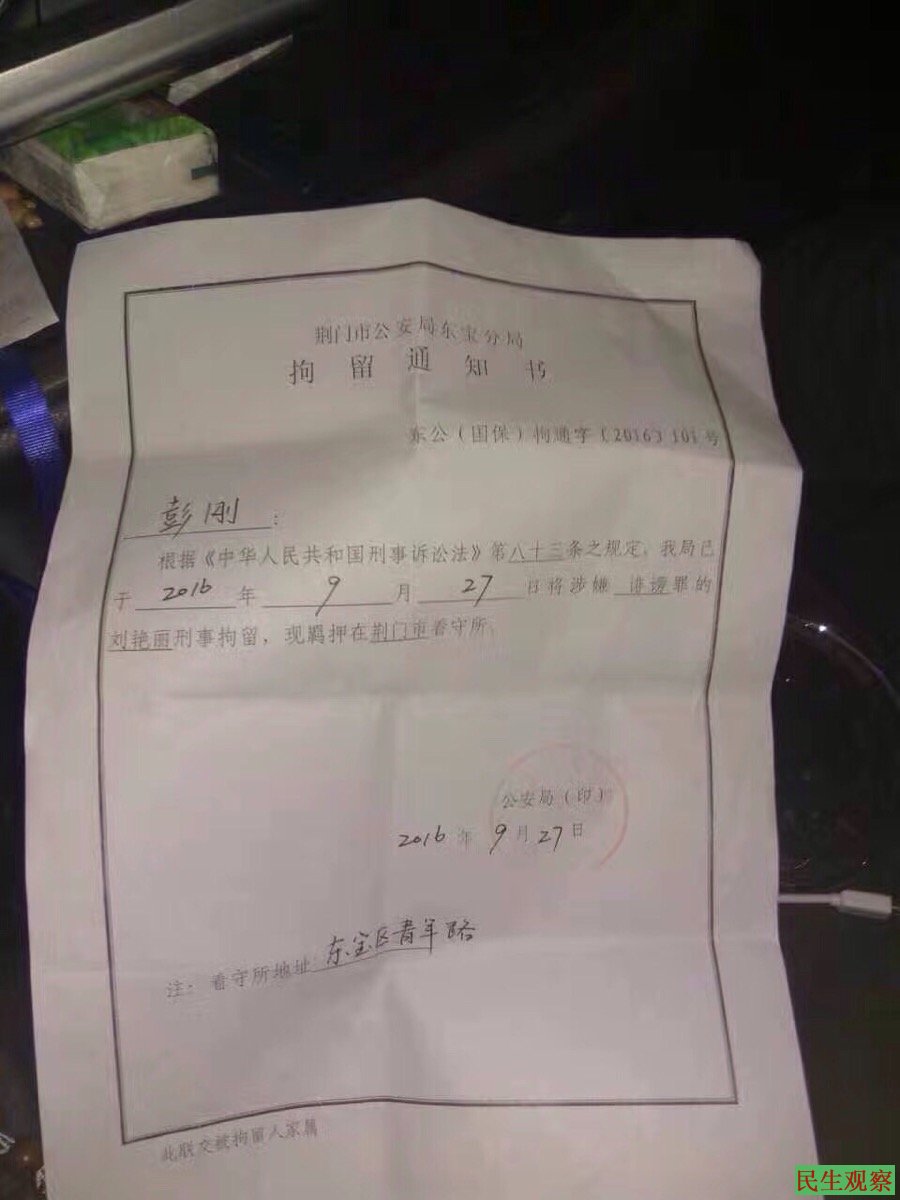 荆门市公安局东宝分局
拘留通知书
东公（国保）拘通字〔2016〕101号
彭刚：
根据《中华人民共和国刑事诉讼法》第八十三条之规定，我局已
于2016年9月27日将涉嫌诽谤罪的
刘艳丽刑事拘留，现羁押在荆门市看守所。
公安局（印）
2016年9月27日
注：看守所地址：东宝区青年路
此联交被拘留人家属
民生观察